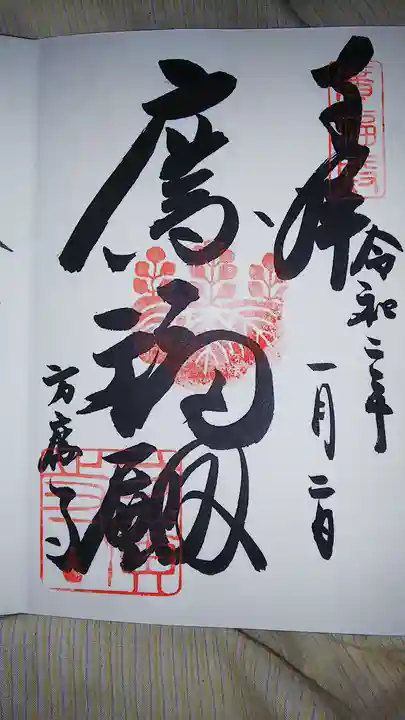 奉拝
令和二年
一月二日
廣福殿
方廣寺